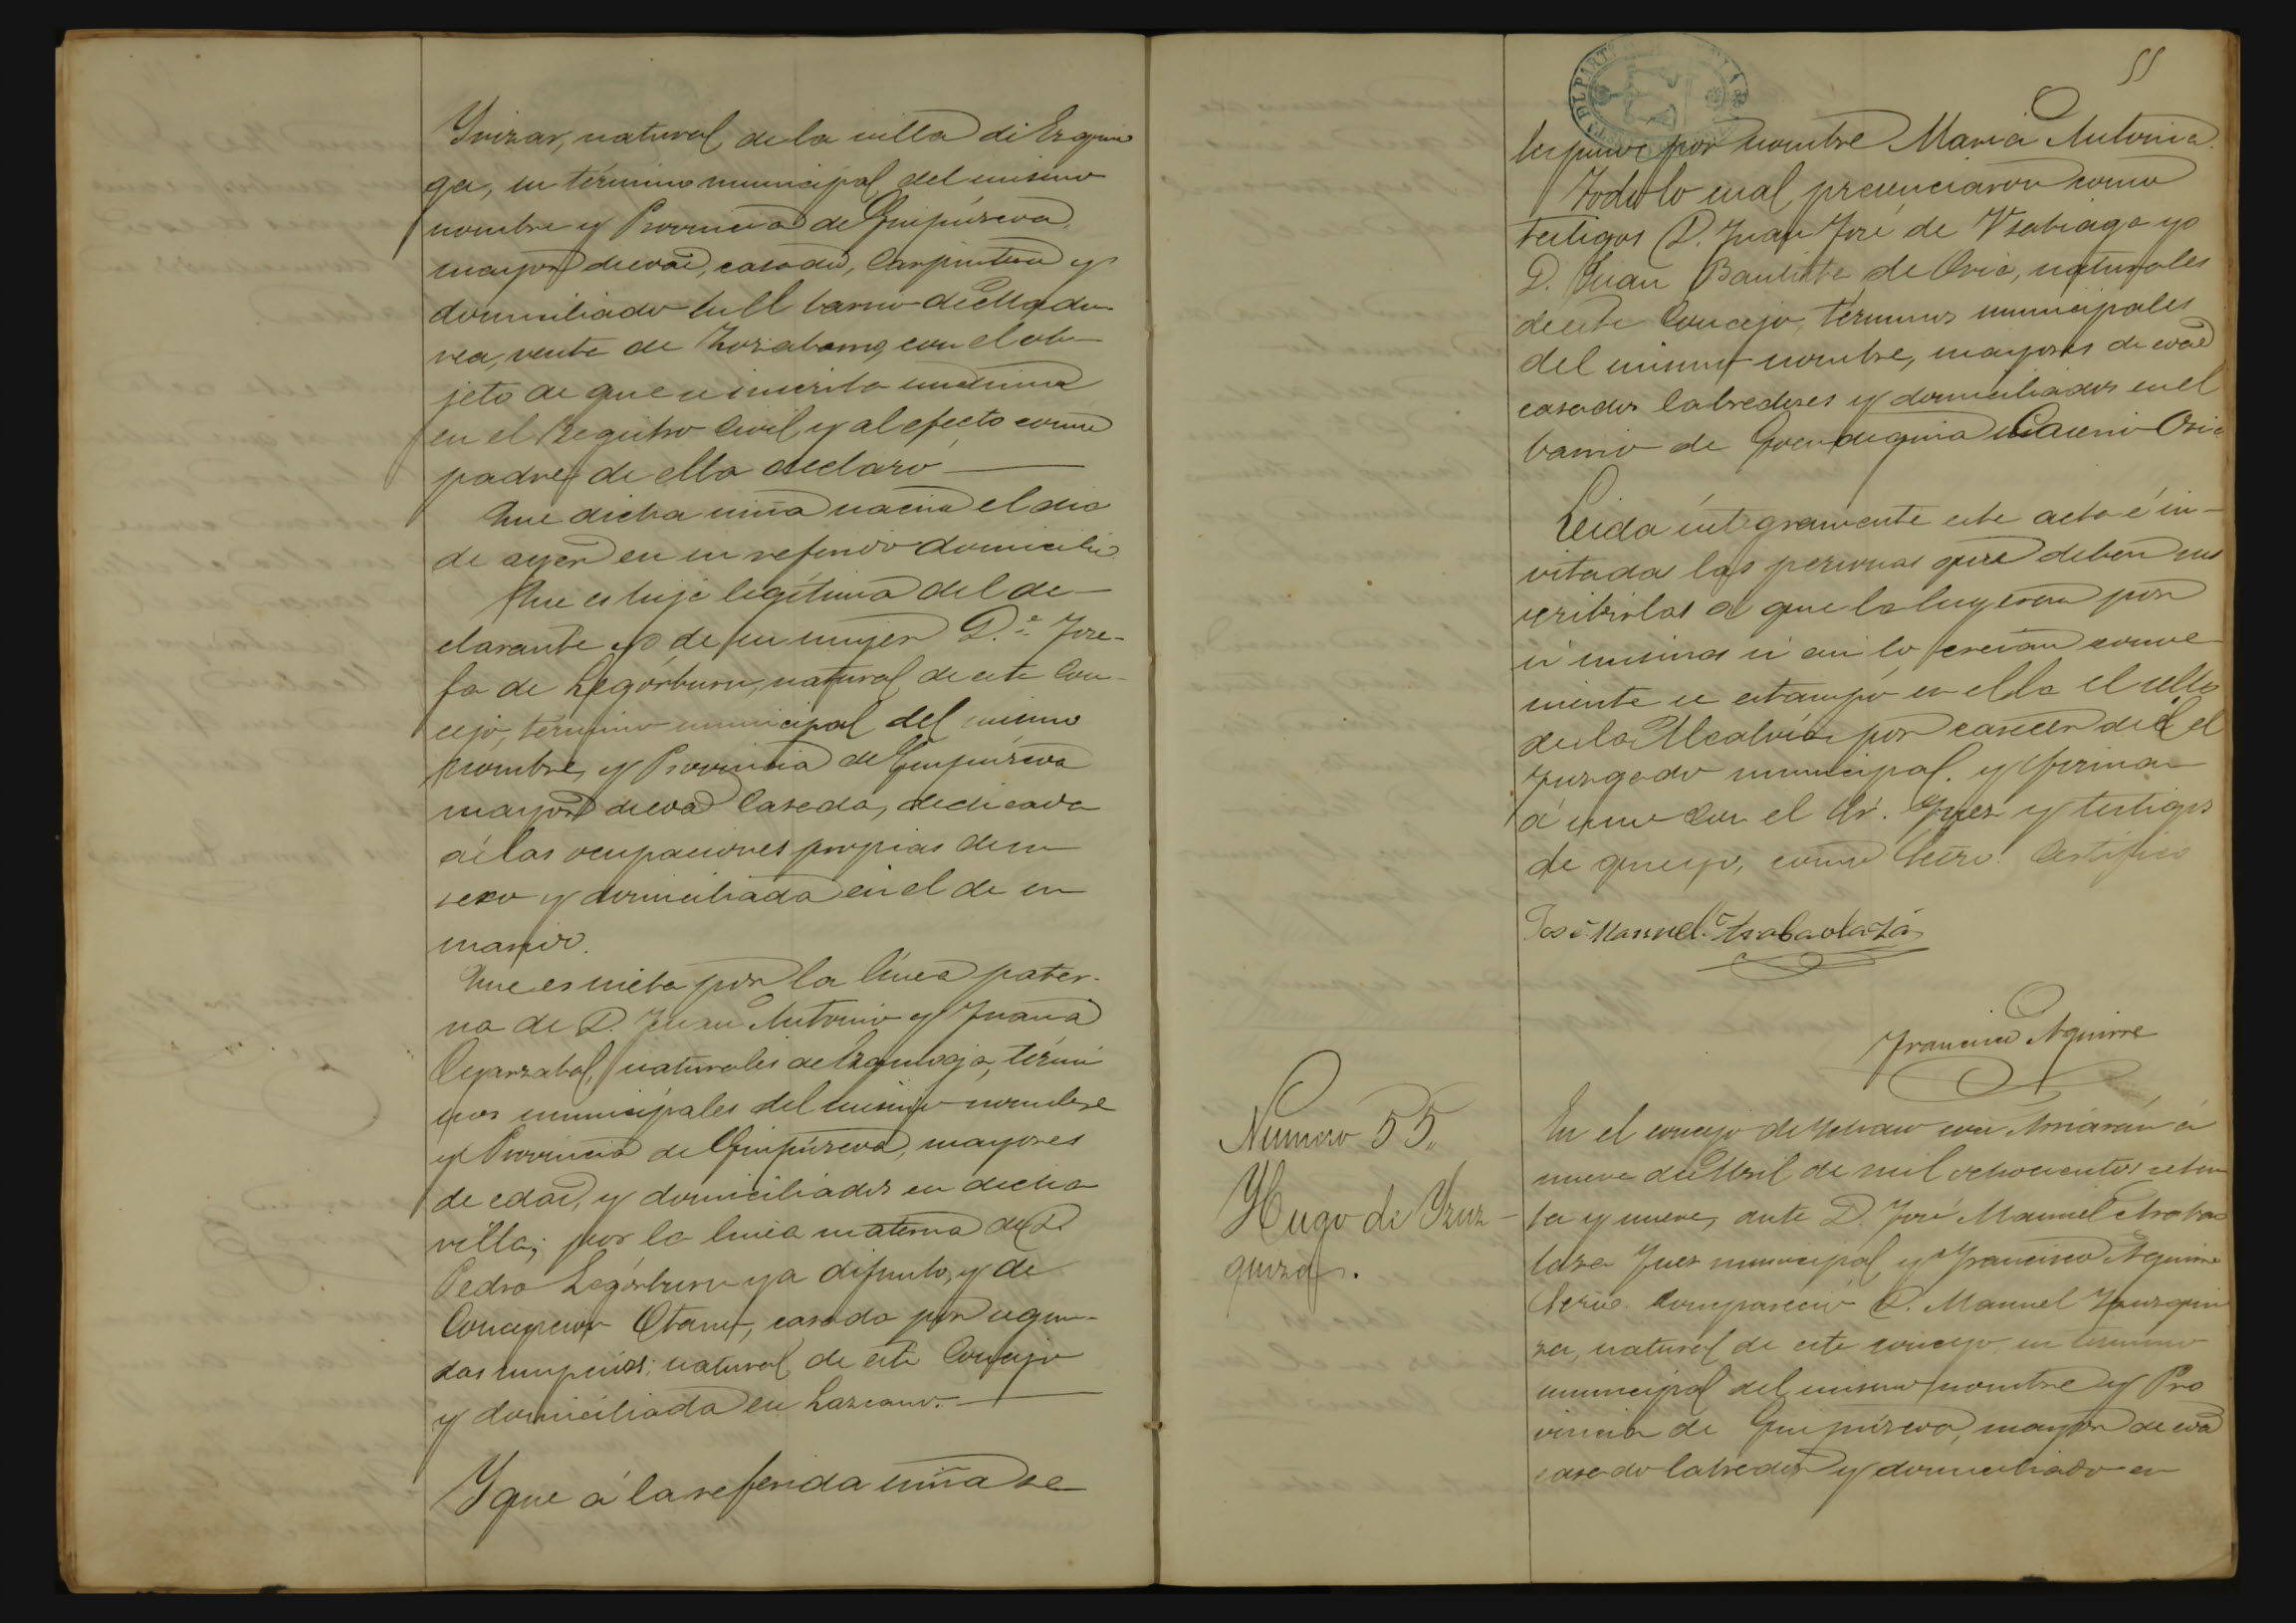 Yrizar, natural de la villa de Ezquio
ga, su término municipal del mismo
nombre y Provincia de Guipúzcoa,
mayor de edad, casado, Carpintero y
domiciliado en el barrio de
venta de con el ob-
jeto de que se inscriba una niña
en el Registro Civil y al efecto como
padre de ella declaró
Que dicha niña nació el dia
de ayer en su referido domicilio.
Que es hija legítima del de-
clarante y de su mujer D.ª Jose-
fa de Legórburu, natural de este Con-
cejo, término municipal del mismo
nombre, y Provincia de Guipúzcoa
mayor de edad Casada, dedicada
á las ocupaciones propias de su
sexo y domiciliada en el de su
marido.
Que es nieta por la línea pater-
na de D. Juan Antonio y Juana
Oyarzabal, naturales de términ
nos municipales del mismo nombre
y Provincia de Guipúzcoa, mayores
de edad, y domiciliados en dicha
villa; por la linea materna de D.
Pedro Legórburu ya difunto, y de
Concepcion casada por segun-
das nupcias; natural de este Concejo
y domiciliada en Lazcano.
Y que á la referida niña se
55
les puso por nombre Maria Antonia.
Todo lo cual presenciaron como
testigos D. Juan José de Usabiaga y
D. Juan Bautista de Oria, naturales
de este Concejo, términos municipales
del mismo nombre, mayores de edad
casados labradores y domiciliados en el
barrio de Oria
Leida íntegramente este acta é in-
vitadas las personas que deben sus
cribirlas á que la leyeran por
si mismas si asi lo creían conve
niente se estampó en ella el sello
de la Alcaldía por carecer de él el
Juzgado municipal. y firman
á uno con el Sr. Juez y testigos
de que yo, como Secro. Certifico
José Manuel Arabaolaza
Francisco Aguirre
Numero 55.
Hugo de Yzuz-
quiza.
En el concejo de Ychaso con Arriarán á
nueve de Abril de mil ochocientos seten
ta y nueve, ante D. José Manuel Arabao
laza Juez municipal y Francisco Aguirre
Secrio. Compareció D. Manuel Yzuzqui
za, natural de este concejo su término
municipal del mismo nombre y Pro
vincia de Guipúzcoa, mayor de edad
casado labrador y domiciliado en